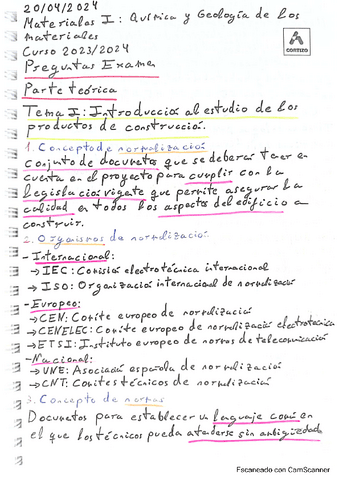 20/04/2024
Materiales I: Química y Geología de los
materiales
CONTIZO
Curso 2023/2024
Preguntas Examen
Parte teórica
Tema I: Introducción al estudio de los
productos de construcción.
1. Concepto de normalización
Conjunto de documentos que se deberán tener en
cuenta en el proyecto para cumplir con la
legislación vigente que permite asegurar la
calidad en todos los aspectos del edificio a
construir.
2. Organismos de normalización
- Internacional:
→ IEC: Comisión electrotécnica internacional
→ ISO: Organización internacional de normalización
- Europeo:
→ CEN: Comite europeo de normalización
→ CENELEC: Comite europeo de normalización electrotecnica
→ ETSI: Instituto europeo de normas de telecomunicación
- Nacional:
→ UNE: Asociación española de normalización
→ CNT: Comites técnicos de normalización
3. Concepto de normas
Documentos para establecer un lenguaje común en
el que los técnicos puedan atenderse sin ambigüedades
Escaneado con CamScanner